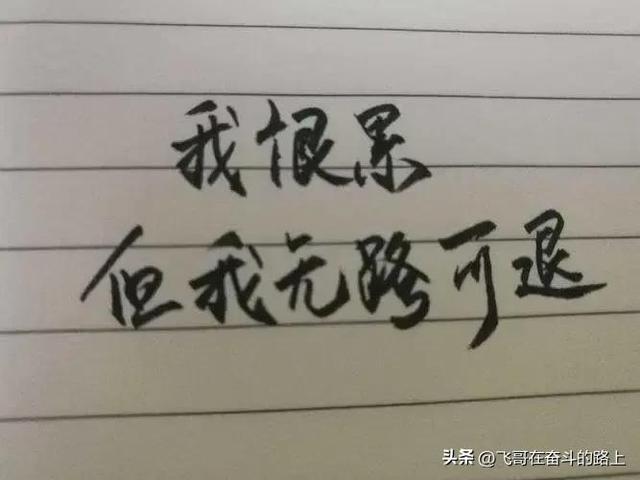 我恨累
但我无路可退
头条 @飞哥在奋斗的路上